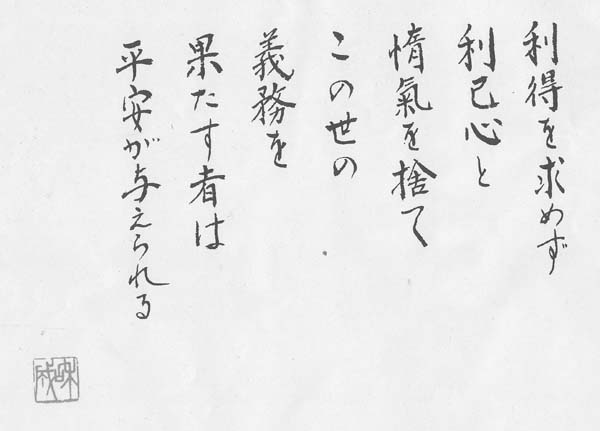 利得を求めず
利己心と
惰氣を捨て
この世の
義務を
果たす者は
平安が与えられる